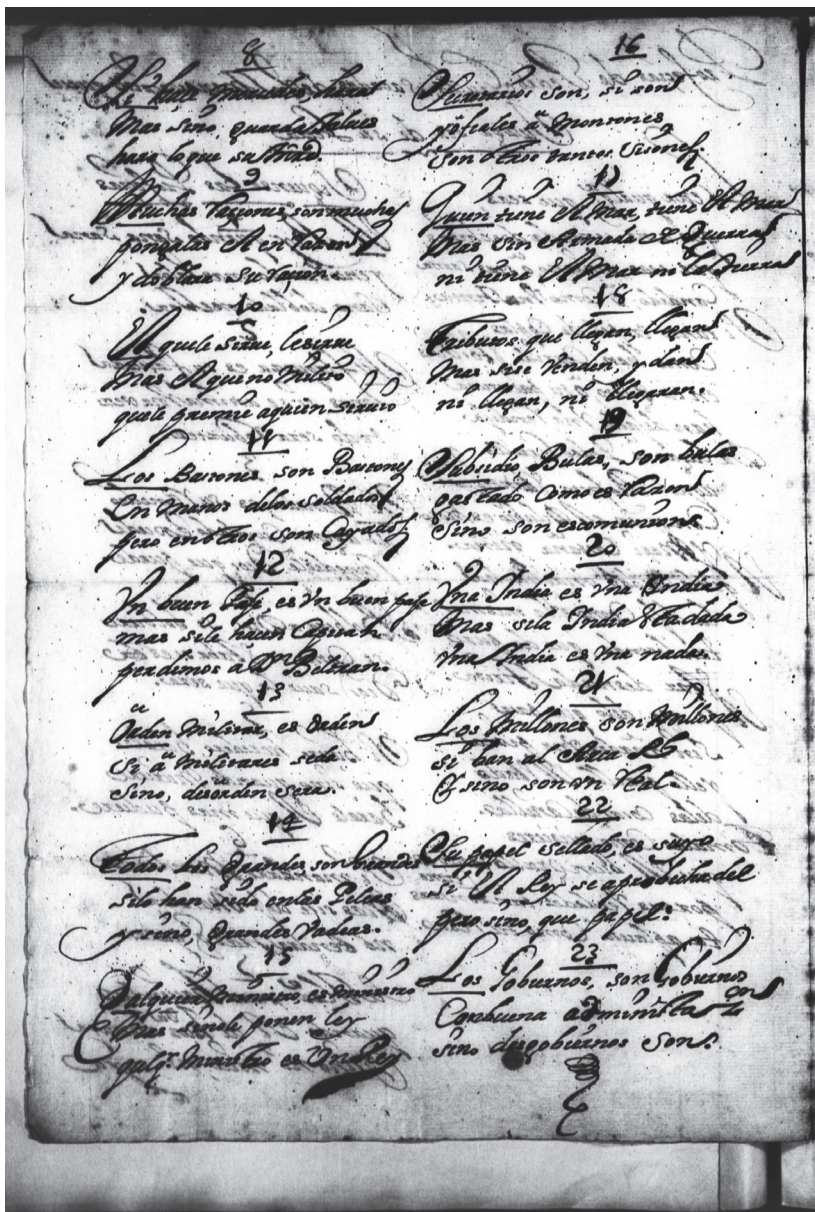 8
mas sino, guarda Pablues
hara lo que su
9
Muchas Raçiones, son muchas
ponganlas A en Razon
y doblara su raçion.
10
Al que le sirue, le sirue
Mas Al que no Miliro
que le premie a quien siruio
11
Los Bastones son Bastones
En manos delos soldados
pero en otros son Cayados
12
Vn buen Paje, es vn buen paje
mas sile hacen Capitan
perdimos a Dn Beltran.
13
Orden Militar, es Orden
Si a Militares seda
Sino, desorden sera.
14
Todos los Grandes son Grandes
silo han sido en las Peleas
y sino, Grandes Vadeas.
15
Qualquier Ministro, es ministro
Mas sinole ponen ley
qualqr. Ministro es Vn Rey
16
son, si son
y ofiziales a Montones
Son otros tantos Visoñes.
17
Quien tiene El Mar, tiene El Mar
Mas sin Armada de Guerra
ni tiene El Mar ni la tierra
18
Tributos que llegan, llegan
Mas sise Venden, y dan
ni llegan, ni llegaran.
19
Subsidio Bulas, son bulas
gastado Como es Razon
Sino son escomunion.
20
Vna India es vna India
Mas sila India Esta dada
vna India es vna nada.
21
Los Millones son Millones
si ban al Arca Rl
Y sino son vn Real.
22
Su papel sellado, es suyo
si El Rey se aprobecha del
pero sino, que papel.
23
Los Gobiernos, son Gobiernos
Con buena administraon
sino desgobiernos Son.